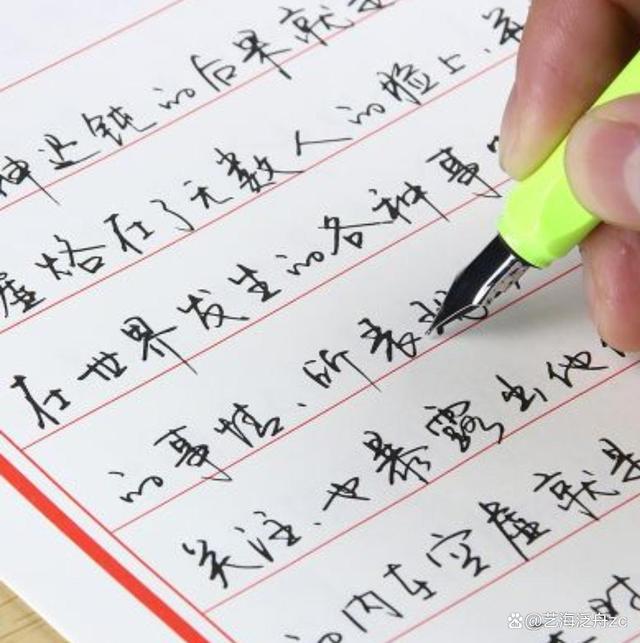 神迟钝的后果就是
虚烙在了无数人的脸上、
在世界发生的各种事
的事情、所表
关注、也暴露出他
的内在空虚就是
时
艺海泛舟zc